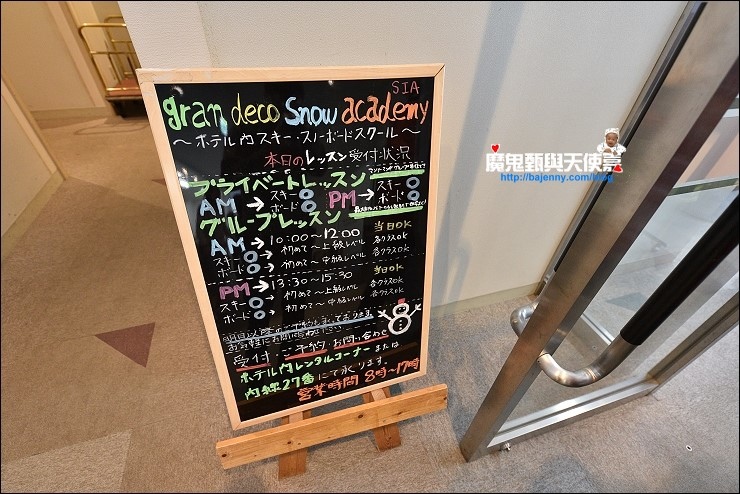 SIA
gran deco Snow academy
〜ホテル内スキー・スノーボードスクール〜
本日のレッスン受付状況
プライベートレッスン
AM → スキー ○ PM → スキー ○
ボード ○ ボード ○
グループレッスン
AM → 10:00〜12:00 当日OK
スキー ○ → 初めて〜上級レベル 各クラスOK
ボード ○ → 初めて〜中級レベル 各クラスOK
PM → 13:30〜15:30 当日OK
スキー ○ → 初めて〜上級レベル 各クラスOK
ボード ○ → 初めて〜中級レベル 各クラスOK
お気軽にお問い合わせください
受付・ご予約・お問い合わせ
ホテル内レンタルコーナーまたは
内線27番にて承ります。
営業時間 8時〜17時
魔鬼甄與天使嘉
http://bajenny.com/blog